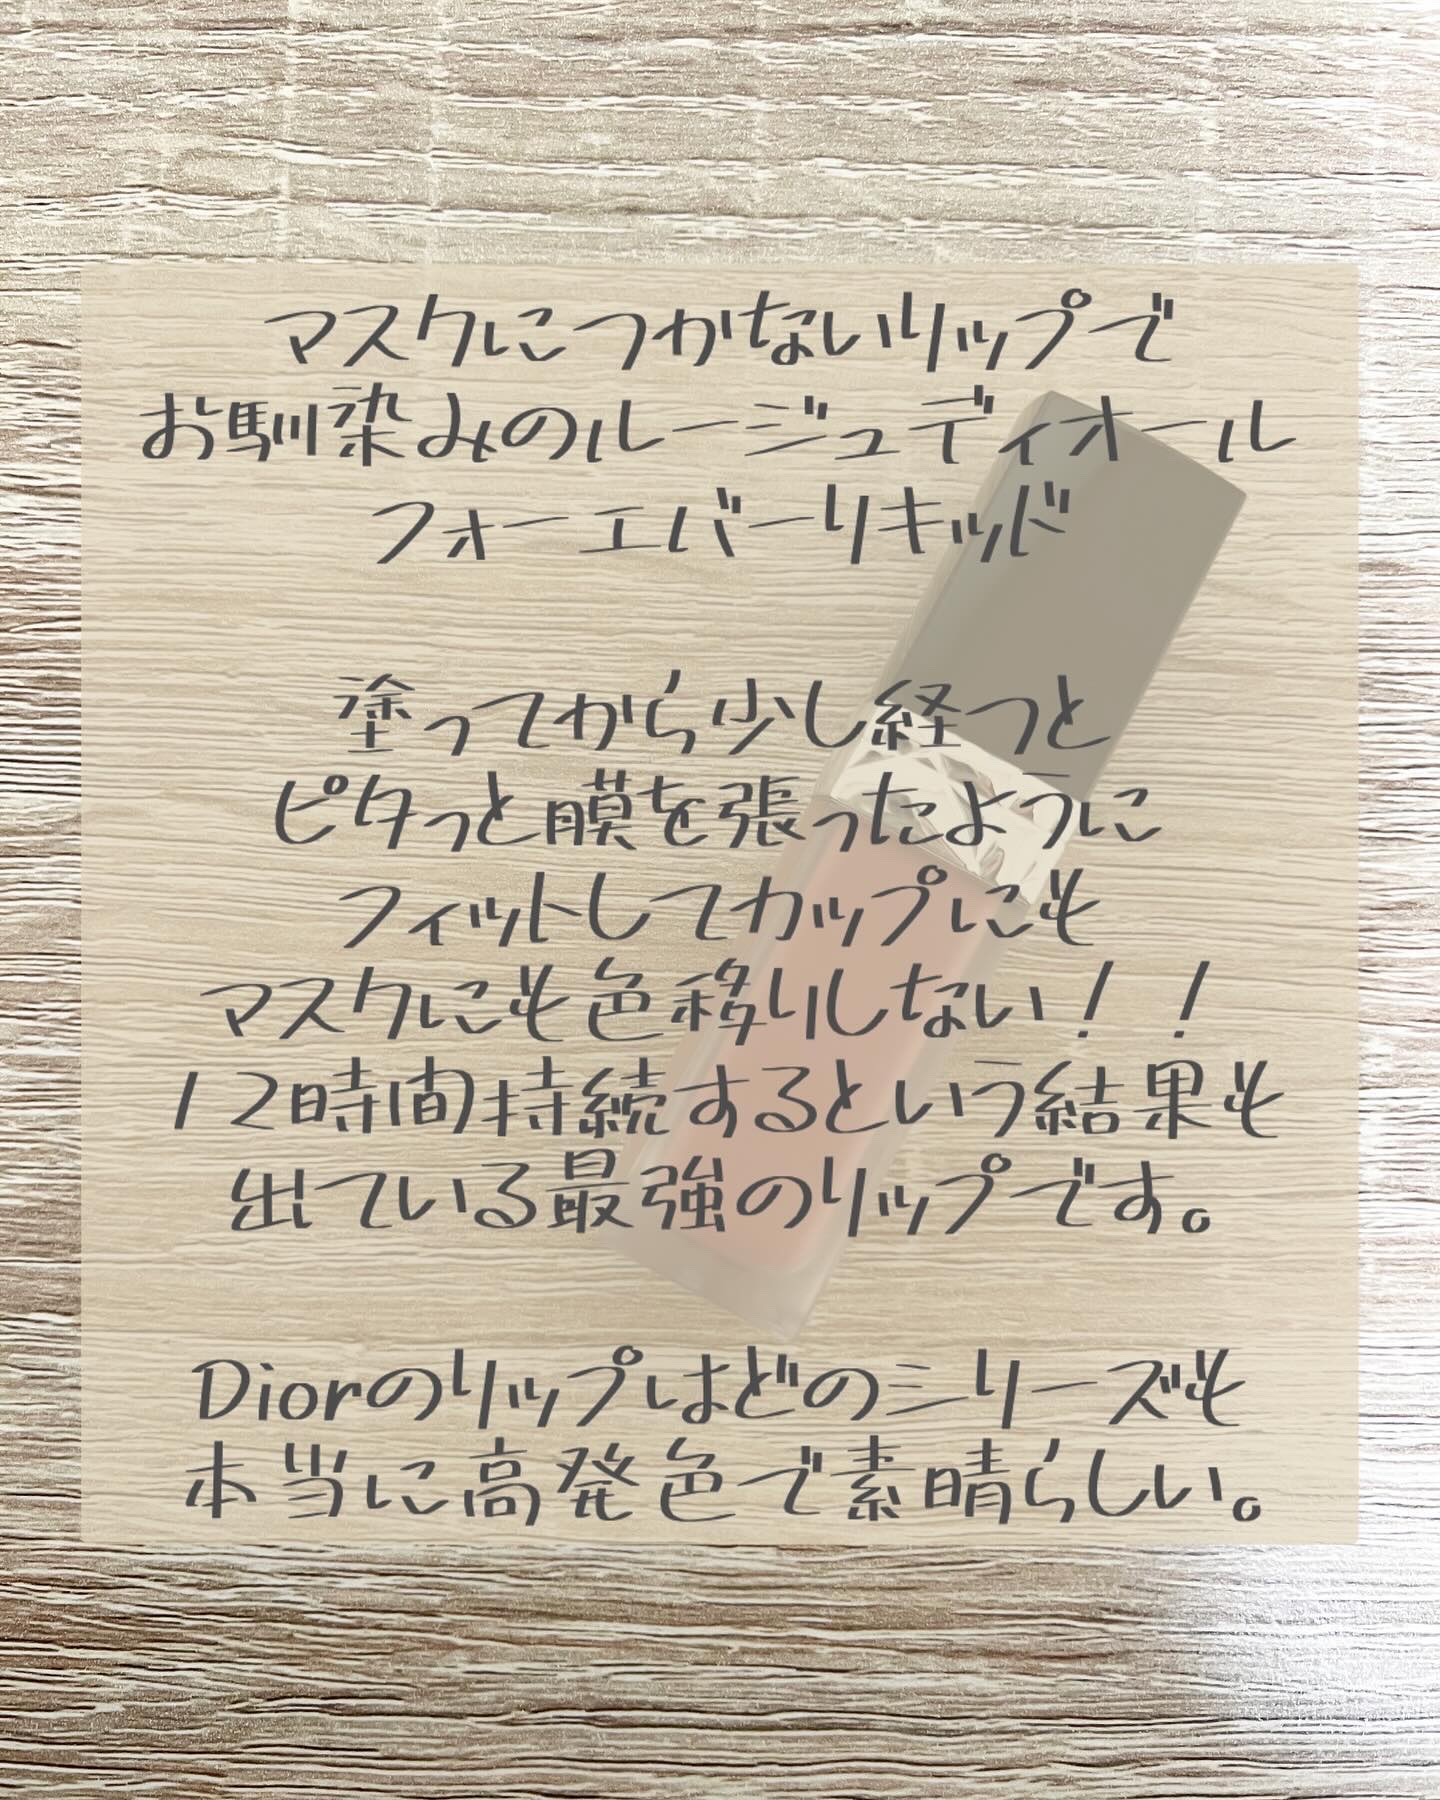 マスクにつかないリップで
お馴染みのルージュディオール
フォーエバーリキッド
塗ってから少し経つと
ピタっと膜を張ったように
フィットしてカップにも
マスクにも色移りしない！！
12時間持続するという結果も
出ている最強のリップです。
Diorのリップはどのシリーズも
本当に高発色で素晴らしい。